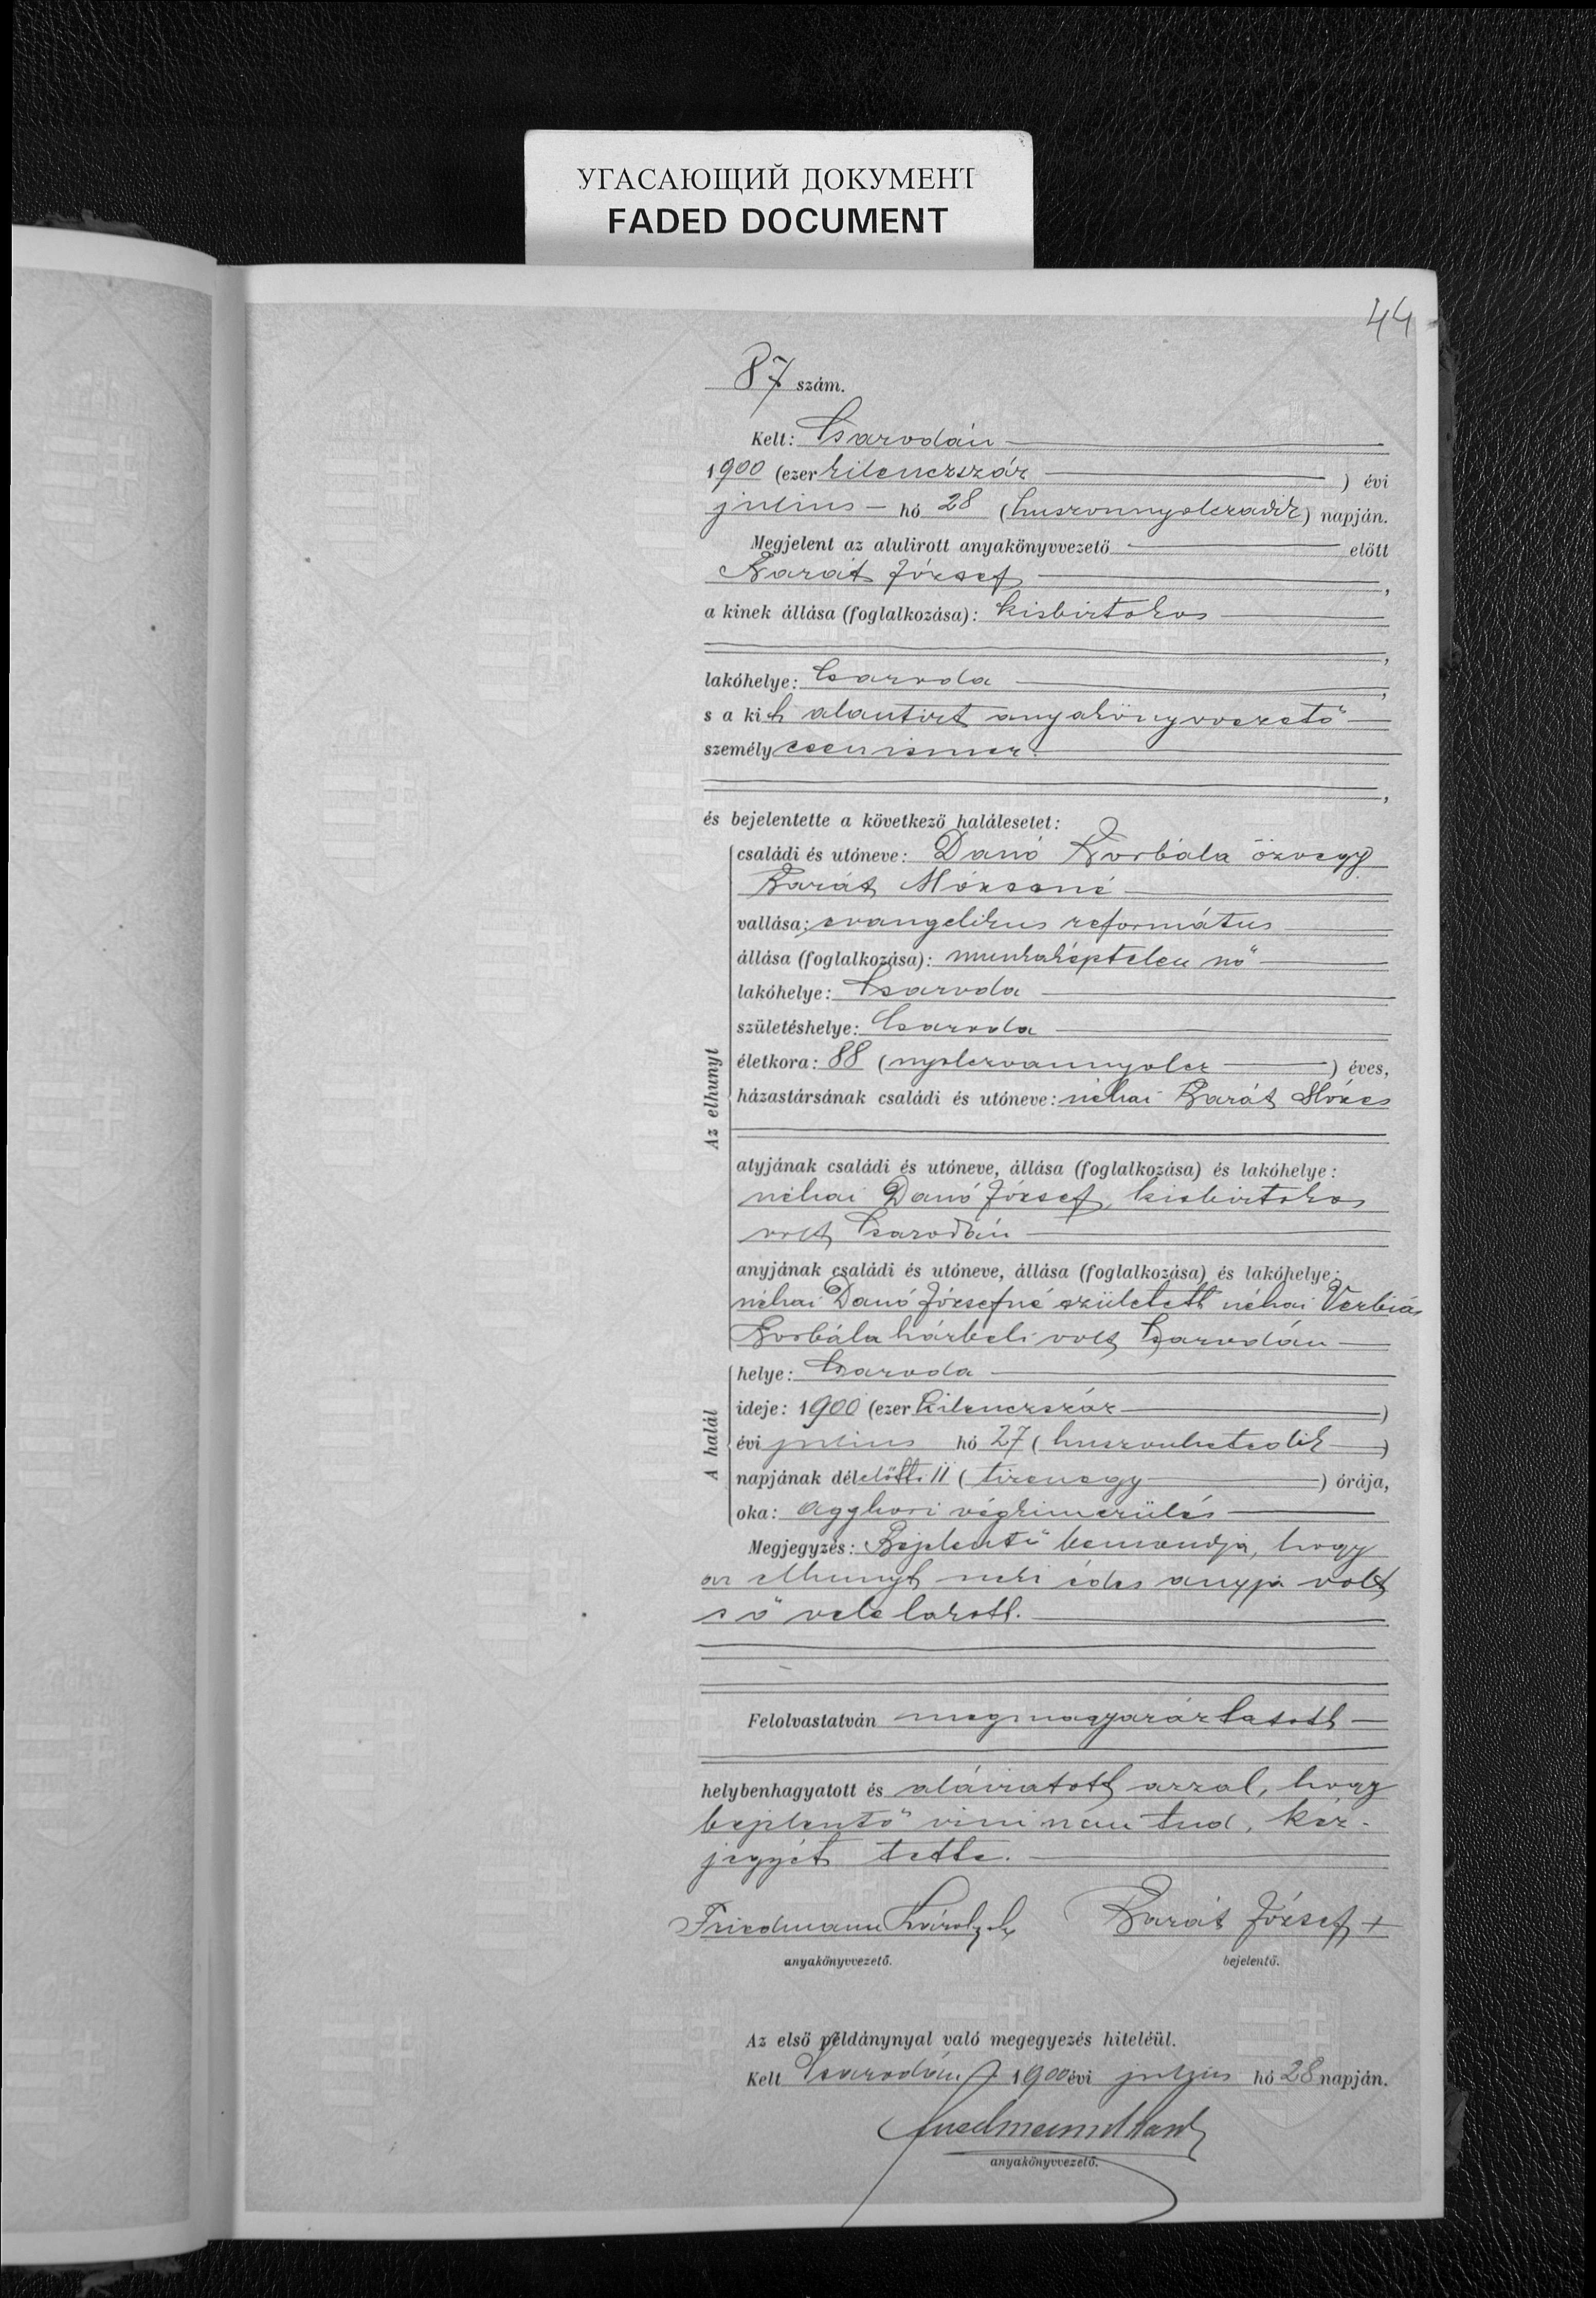 УГАСАЮЩИЙ ДОКУМЕНТ
FADED DOCUMENT
44
87 szám.
Kelt: Csarodán
1900 (ezer kilenczszáz ) évi
julius hó 28 (huszonnyolczadik) napján.
Megjelent az alulirott anyakönyvvezető előtt
Barát József ,
a kinek állása (foglalkozása): kisbirtokos
,
lakóhelye: Csaroda ,
s a kit alantirt anyakönyvvezető
személyesen ismer.
,
és bejelentette a következő halálesetet:
Az elhunyt
családi és utóneve: Danó Borbála özvegy
Barát Mózesné
vallása: evangelikus református
állása (foglalkozása): munkaképtelen nő
lakóhelye: Csaroda
születéshelye: Csaroda
életkora: 88 (nyolczvannyolcz ) éves,
házastársának családi és utóneve: néhai Barát Mózes
atyjának családi és utóneve, állása (foglalkozása) és lakóhelye:
néhai Danó József, kisbirtokos
volt Csarodán
anyjának családi és utóneve, állása (foglalkozása) és lakóhelye:
néhai Danó Józsefné született néhai Verbiás
Borbála házbeli volt Csarodán
A halál
helye: Csaroda
ideje: 1900 (ezer kilenczszáz )
évi julius hó 27 (huszonhetedik )
napjának délelőtti 11 (tizenegy ) órája,
oka: aggkori végkimerülés
Megjegyzés: Bejelentő bemondja, hogy
az elhunyt neki édes anyja volt
s ő vele lakott.
Felolvastatván megmagyaráztatott
helybenhagyatott és aláiratott azzal, hogy
bejelentő irni nem tud, kéz-
jegyét tette.
Friedmann Károly sk Barát József +
anyakönyvvezető. bejelentő.
Az első példánynyal való megegyezés hiteléül.
Kelt Csarodán 1900 évi julius hó 28 napján.
anyakönyvvezető.